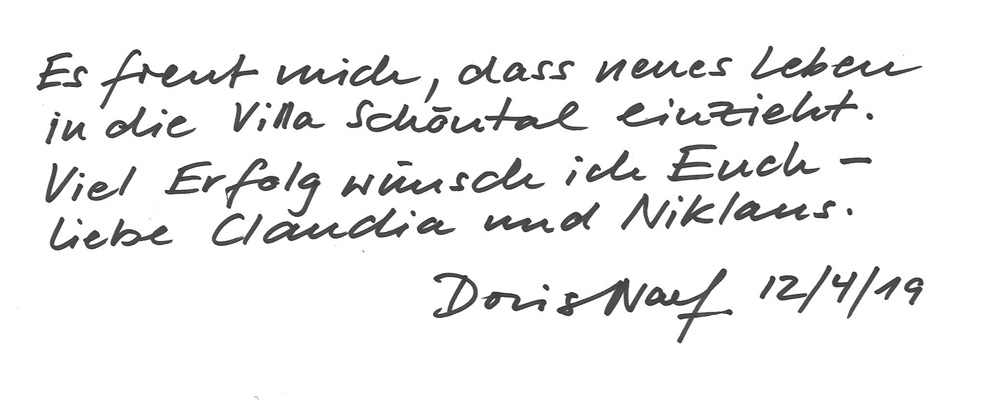 Es freut mich, dass neues Leben
in die Villa Schöntal einzieht.
Viel Erfolg wünsch ich Euch –
liebe Claudia und Niklaus.
Doris Naef 12/4/19